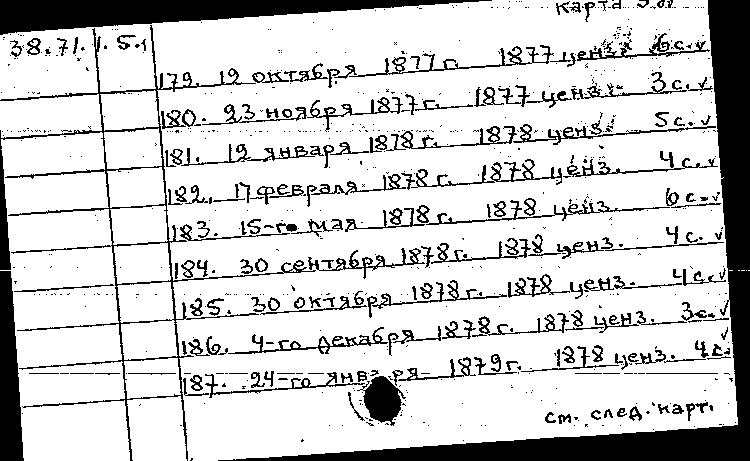 карта
38.71.1.5.1
179. 19 октября 1877 г. 1877 ценз. 6 с. v
180. 23 ноября 1877 г. 1877 ценз. 3 с. v
181. 12 января 1878 г. 1878 ценз. 5 с. v
182. 17 февраля 1878 г. 1878 ценз. 4 с. v
183. 15-го мая 1878 г. 1878 ценз. 6 с. v
184. 30 сентября 1878 г. 1878 ценз. 4 с. v
185. 30 октября 1878 г. 1878 ценз. 4 с. v
186. 4-го декабря 1878 г. 1878 ценз. 3 с. v
187. 24-го января 1879 г. 1878 ценз. 4 с. v
см. след. карт.